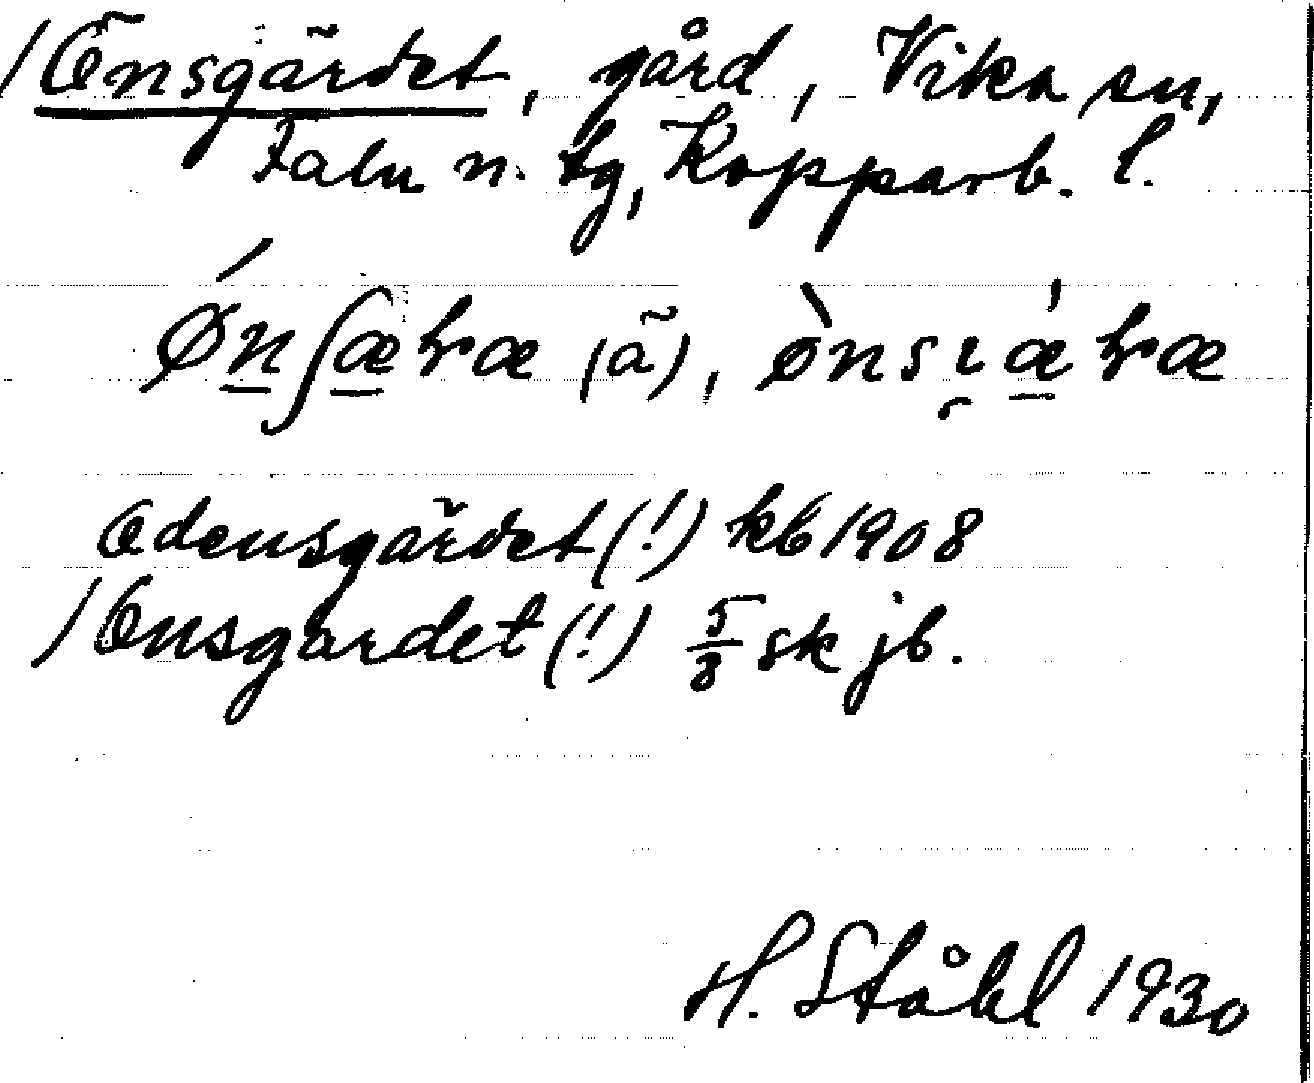 /Önsgärdet, gård, Vika sn,
Falu n. tg, Kopparb. l.
(ä),
Ödensgärdet(!) kb 1908
/Önsgardet(!) 5/8 sk jb.
H. Ståhl 1930